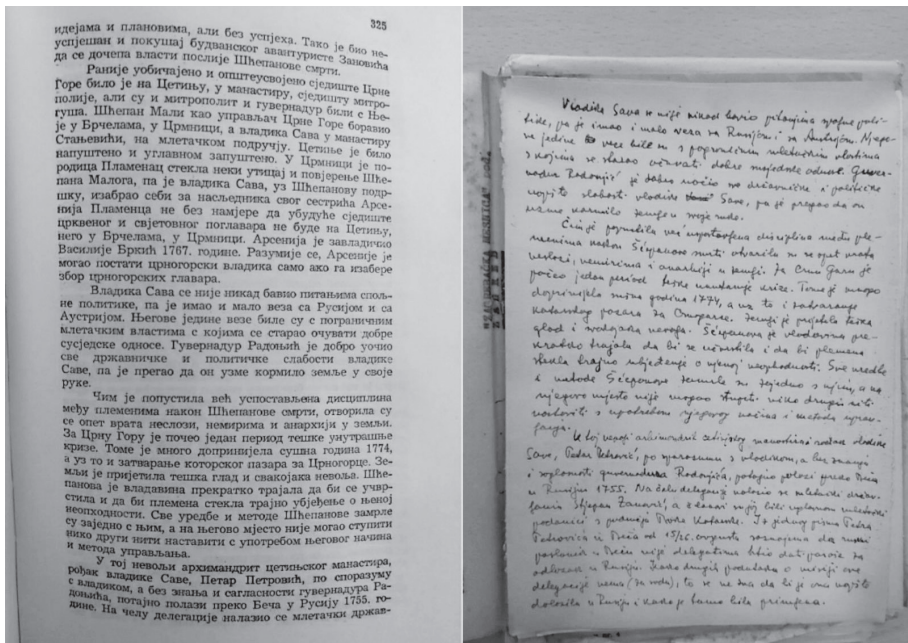 325
идејама и плановима, али без успјеха. Тако је био не-
успјешан и покушај будванског авантуристе Зановића
да се дочепа власти послије Шћепанове смрти.
Раније уобичајено и општеусвојено сједиште Црне
Горе било је на Цетињу, у манастиру, сједишту митро-
полије, али су и митрополит и гувернадур били с Ње-
гуша. Шћепан Мали као управљач Црне Горе боравио
је у Брчелама, у Црмници, а владика Сава у манастиру
Стањевићи, на млетачком подручју. Цетиње је било
напуштено и углавном запуштено. У Црмници је по-
родица Пламенац стекла неки утицај и повјерење Шће-
пана Малога, па је владика Сава, уз Шћепанову подр-
шку, изабрао себи за насљедника свог сестрића Арсе-
нија Пламенца не без намјере да убудуће сједиште
црквеног и свјетовног поглавара не буде на Цетињу,
него у Брчелама, у Црмници. Арсенија је завладичио
Василије Бркић 1767. године. Разумије се, Арсеније је
могао постати црногорски владика само ако га изабере
збор црногорских главара.
Владика Сава се није никад бавио питањима спољ-
не политике, па је имао и мало веза са Русијом и са
Аустријом. Његове једине везе биле су с пограничним
млетачким властима с којима се старао очувати добре
сусједске односе. Гувернадур Радоњић је добро уочио
све државничке и политичке слабости владике
Саве, па је прегао да он узме кормило земље у своје
руке.
Чим је попустила већ успостављена дисциплина
међу племенима након Шћепанове смрти, отворила су
се опет врата неслози, немирима и анархији у земљи.
За Црну Гору је почео један период тешке унутрашње
кризе. Томе је много допринијела сушна година 1774,
а уз то и затварање которског пазара за Црногорце. Зе-
мљи је пријетила тешка глад и свакојака невоља. Шће-
панова је владавина прекратко трајала да би се учвр-
стила и да би племена стекла трајно убјеђење о њеној
неопходности. Све уредбе и методе Шћепанове замрле
су заједно с њим, а на његово мјесто није могао ступити
нико други нити наставити с употребом његовог начина
и метода управљања.
У тој невољи архимандрит цетињског манастира,
рођак владике Саве, Петар Петровић, по споразуму
с владиком, а без знања и сагласности гувернадура Ра-
доњића, потајно полази преко Беча у Русију 1755. го-
дине. На челу делегације налазио се млетачки држав-
Vladika Sava se nije nikad bavio pitanjima spoljne poli-
tike, pa je imao i malo veza sa Rusijom i sa Austrijom. Njego-
ve jedine veze bile su s pograničnim mletačkim vlastima
s kojima se starao očuvati dobre susjedske odnose. Guver-
nadur Radonjić je dobro uočio sve državničke i političke
slabosti vladike Save, pa je pregao da on
uzme kormilo zemlje u svoje ruke.
Čim je popustila već uspostavljena disciplina među ple-
menima nakon Šćepanove smrti otvorila su se opet vrata
neslozi, nemirima i anarhiji u zemlji. Za Crnu Goru je
počeo jedan period teške unutrašnje krize. Tome je mnogo
doprinijela sušna godina 1774, a uz to i zatvaranje
kotorskog pazara za Crnogorce. Zemlji je prijetila teška
glad i svakojaka nevolja. Šćepanova je vladavina pre-
kratko trajala da bi se učvrstila i da bi plemena
stekla trajno ubjeđenje o njenoj neophodnosti. Sve uredbe
i metode Šćepanove zamrle su zajedno s njim, a na
njegovo mjesto nije mogao stupiti niko drugi niti
nastaviti s upotrebom njegovog načina i metoda uprav-
ljanja.
U toj nevolji arhimandrit cetinjskog manastira, rođak vladike
Save, Petar Petrović, po sporazumu s vladikom, a bez znanja
i saglasnosti guvernadura Radonjića, potajno polazi preko Beča
u Rusiju 1755. Na čelu delegacije nalazio se mletački držav-
ljanin Stjepan Zanović, a bili uglavnom mletački
podanici s područja Boke Kotorske. Iz jednog pisma Petra
Petrovića iz Beča od 15/26. avgusta saznajemo da ruski
poslanik u Beču nije delegatima htio dati pasoše za
odlazak u Rusiju. Kako drugih podataka o misiji ove
delegacije nema (za sada), to se ne zna da li je ona uopšte
dolazila u Rusiju i kako je tamo bila primljena.